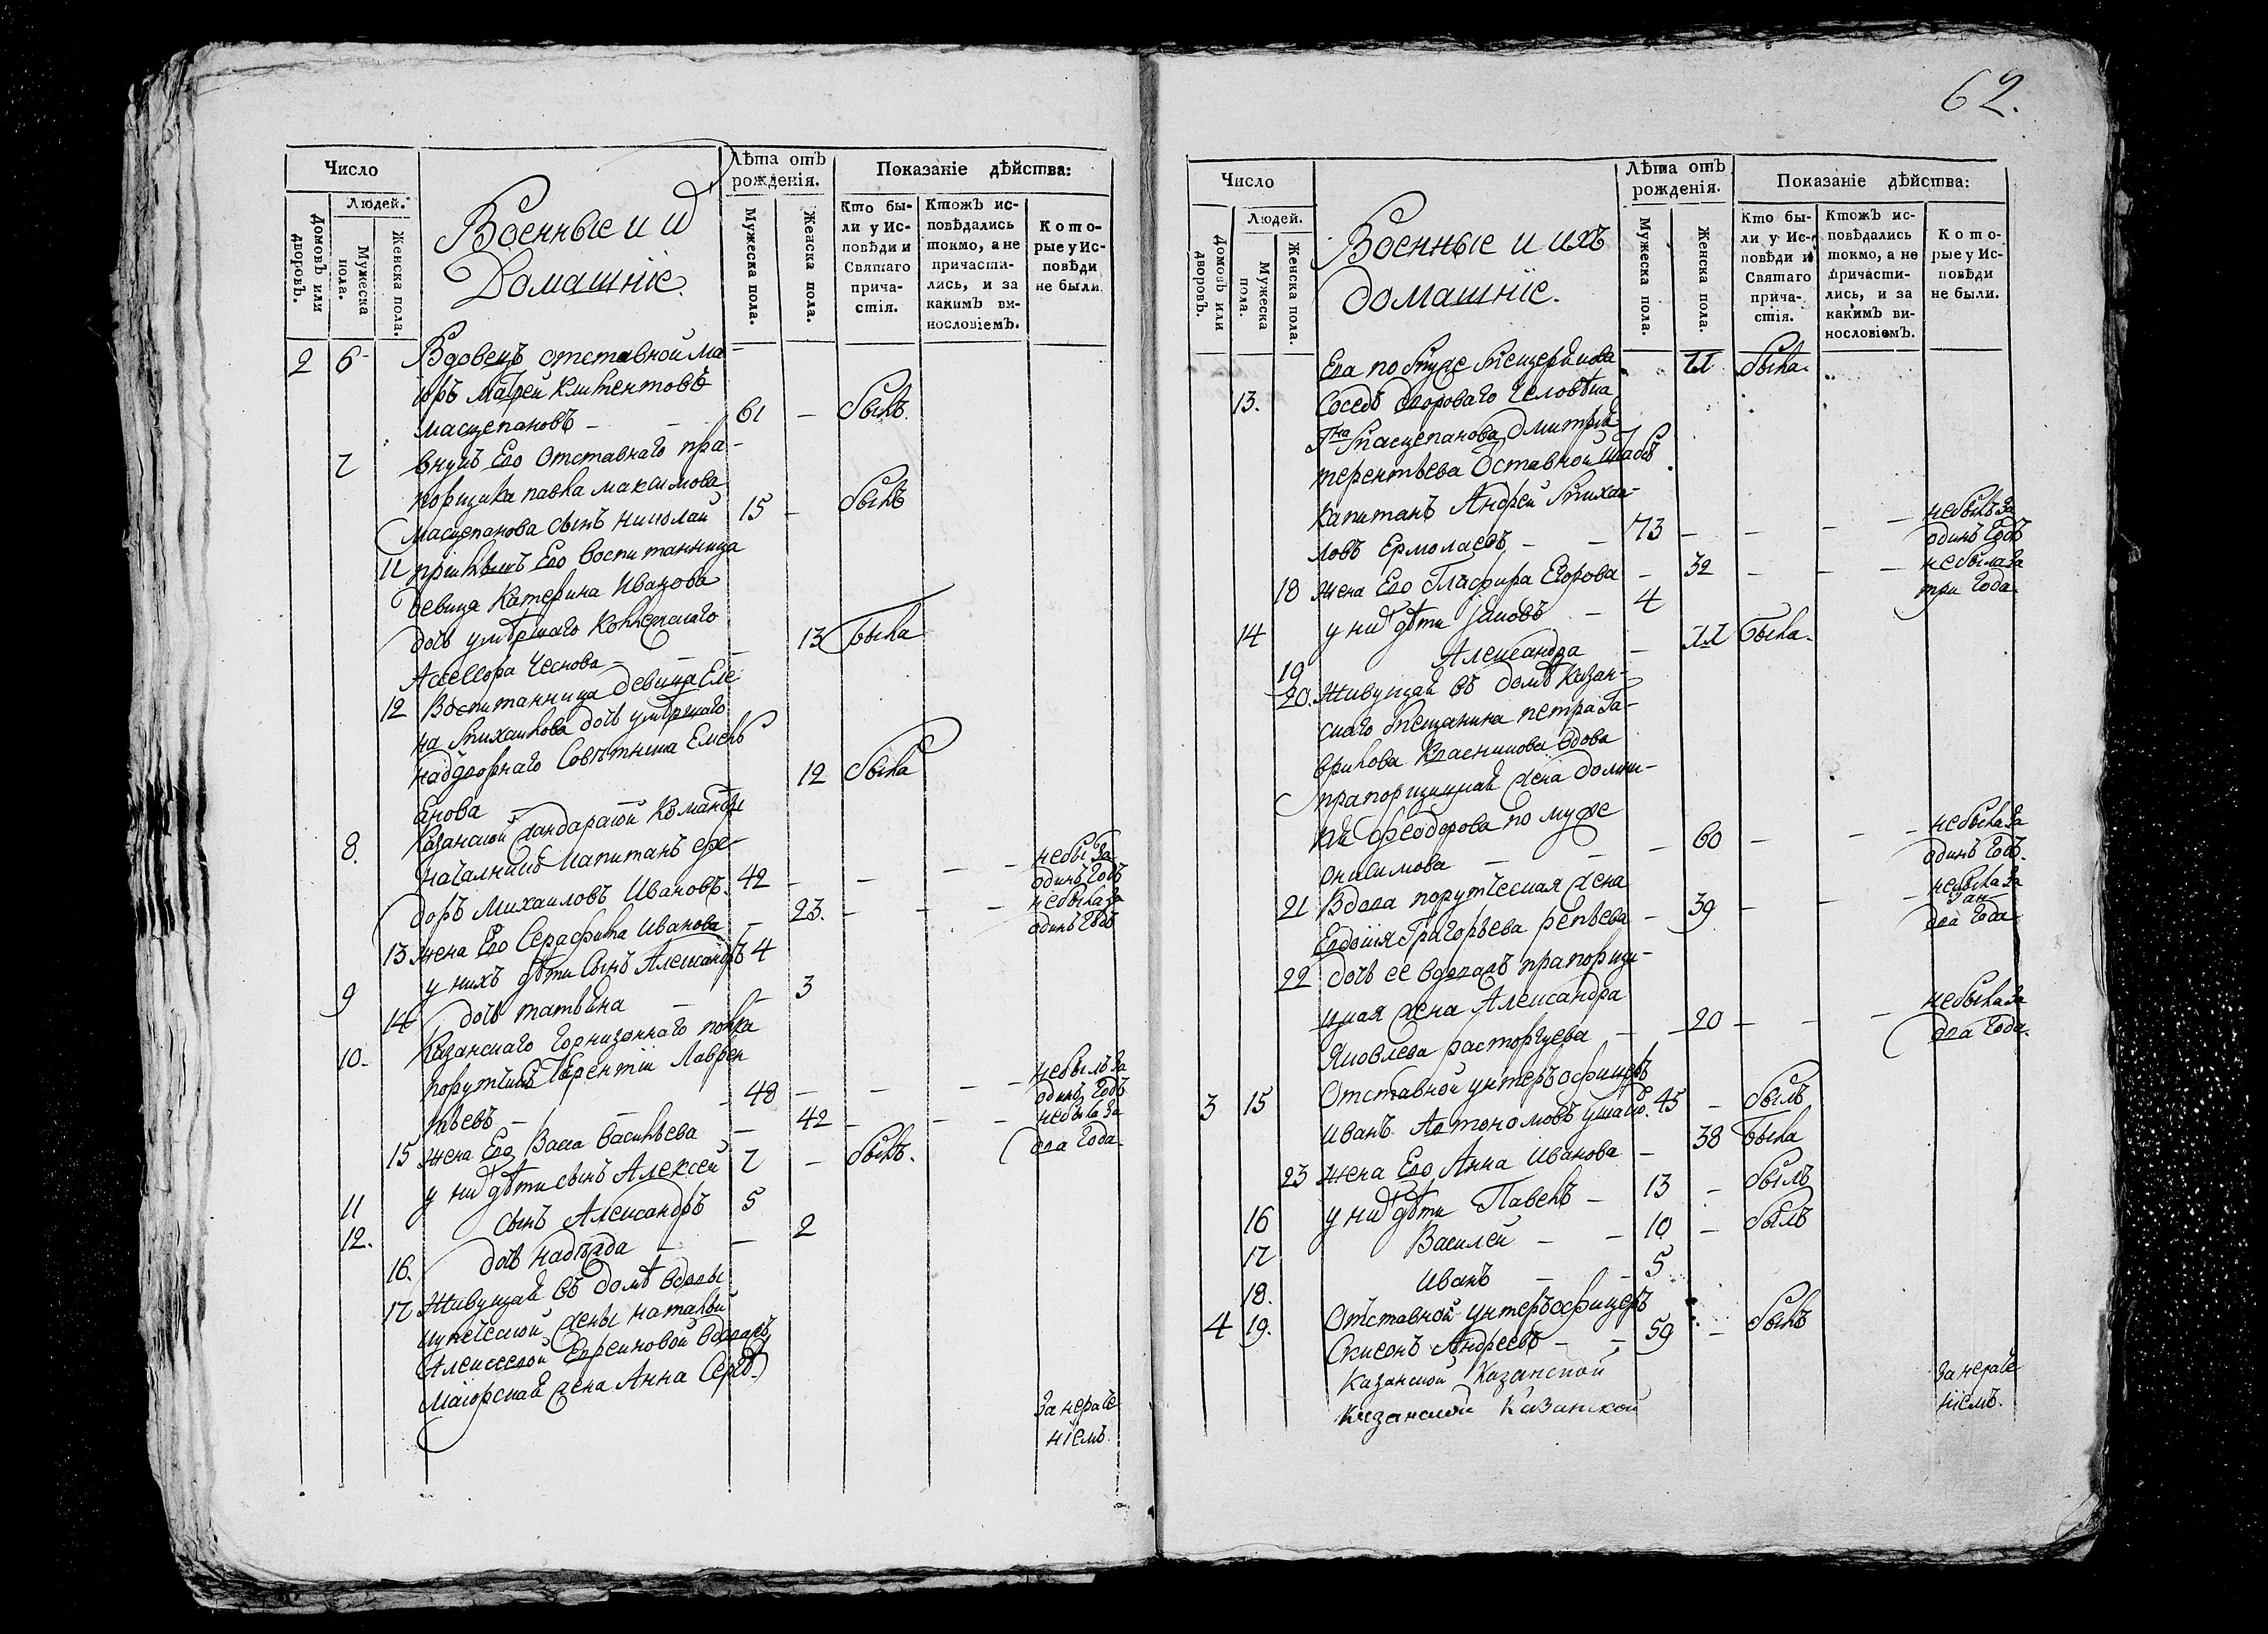 Число
Людей.
Домовъ или дворовъ.
Мужеска пола.
Женска пола.
Военные и
Домашніе.
Лѣта отъ рожденія.
Мужеска пола.
Женска пола.
Показаніе дѣйства:
Кто бы-
ли у Ис-
повѣди и
Святаго
прича-
стія.
Ктожъ ис-
повѣдались
токмо, а не
причасти-
лись, и за
какимъ ви-
нословіемъ.
Кото-
рые у Ис-
повѣди
не были.
2 6 Вдовецъ отставной ма-
іоръ
Масцепановъ - 61 - былъ
7 внукъ Его Отставнаго пра-
порщика павла максимова
Масцепанова сынъ николай 15 - былъ
11 Его воспитанница
девица Катерина Иванова
дочь умѣршаго Коллепскаго
Асессора Чеснова - - - 13 была
12 Воспитанница девица Еле
на Михаилова дочь умѣршаго
надворнаго Совѣтника Емель
янова 12 была
8. Казанской жандарской Команды
началникъ капитанъ фе-
доръ Михаиловъ Ивановъ. 42 - - - небы за
одинъ годъ
13 жена Его Серафима Иванова - 23. - - - небыла за
одинъ годъ
9 у нихъ дѣти Сынъ Александръ 4
14 дочь татьяна - - 3
10. Казанскаго Горнизоннаго полка
порутчикъ Терентіи Лаврен
тьевъ - - - 48 - - - небылъ за
одинъ годъ
15 жена Его Васильева - 42 - - - небыла за
два года.
11 у них дѣти сынъ Алексей 7 - былъ.
12. сынъ Александръ 5
16. дочь надѣжда - - 2
17 Живущая въ домѣ вдовы
купеческой жены натальи
Алексеевой вдова
Маіорская жена Анна
За нераче
ніемъ.
62.
Число
Людей.
Домовъ или дворовъ.
Мужеска пола.
Женска пола.
Военные и ихъ
домашніе.
Лѣта отъ рожденія.
Мужеска пола.
Женска пола.
Показаніе дѣйства:
Кто бы-
ли у Ис-
повѣди и
Святаго
прича-
стія.
Ктожъ ис-
повѣдались
токмо, а не
причасти-
лись, и за
какимъ ви-
нословіемъ.
Кото-
рые у Ис-
повѣди
не были.
ва по муже была.
13. Соседъ двороваго Человѣка
Гна Масцепанова Дмитрія
терентьева Отставной штабъ
Капитанъ Андрей Михаи-
ловъ Ермолаевъ - - 73 - - - небылъ за
одинъ годъ
18 жена Его Глафира Егорова - 32 - - - небыла за
три года.
14 у них дѣти Іаковъ - 4
19 Александра - была.
20. Живущая въ домѣ Казан-
скаго Мещанина петра Га-
врилова вдова
прапорщицкая жена домни-
ка феодорова по муже
онисимова - - - 60 - - - небыла за
одинъ годъ.
21 Вдова порутческая жена
Евдокія Григорьева репьева - 39 - - - небыла за
два года.
22 дочь ее вдовая прапорщи-
цкая жена Александра
Яковлева расторгуева - - 20 - - - небыла за
два года.
3 15 Отставной унтеръ офицеръ
иванъ Автономовъ 45 - былъ
23 жена Его Анна Иванова - 38 была
16 у них дѣти Павелъ - 13 - былъ
17 Василей - - 10 - былъ
18. иванъ - - 5
4 19. Отставной унтеръ офицеръ
Андреевъ - - 59 - былъ
Казанской Казанской
Казанской Казанской
За нераче
ніемъ.